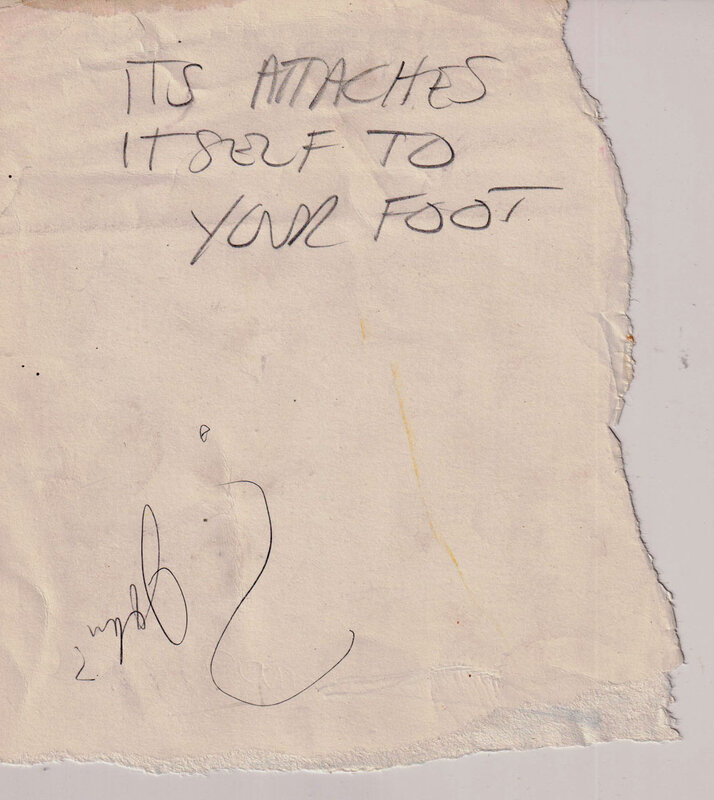 ITS ATTACHES
ITSELF TO
YOUR FOOT
John
?